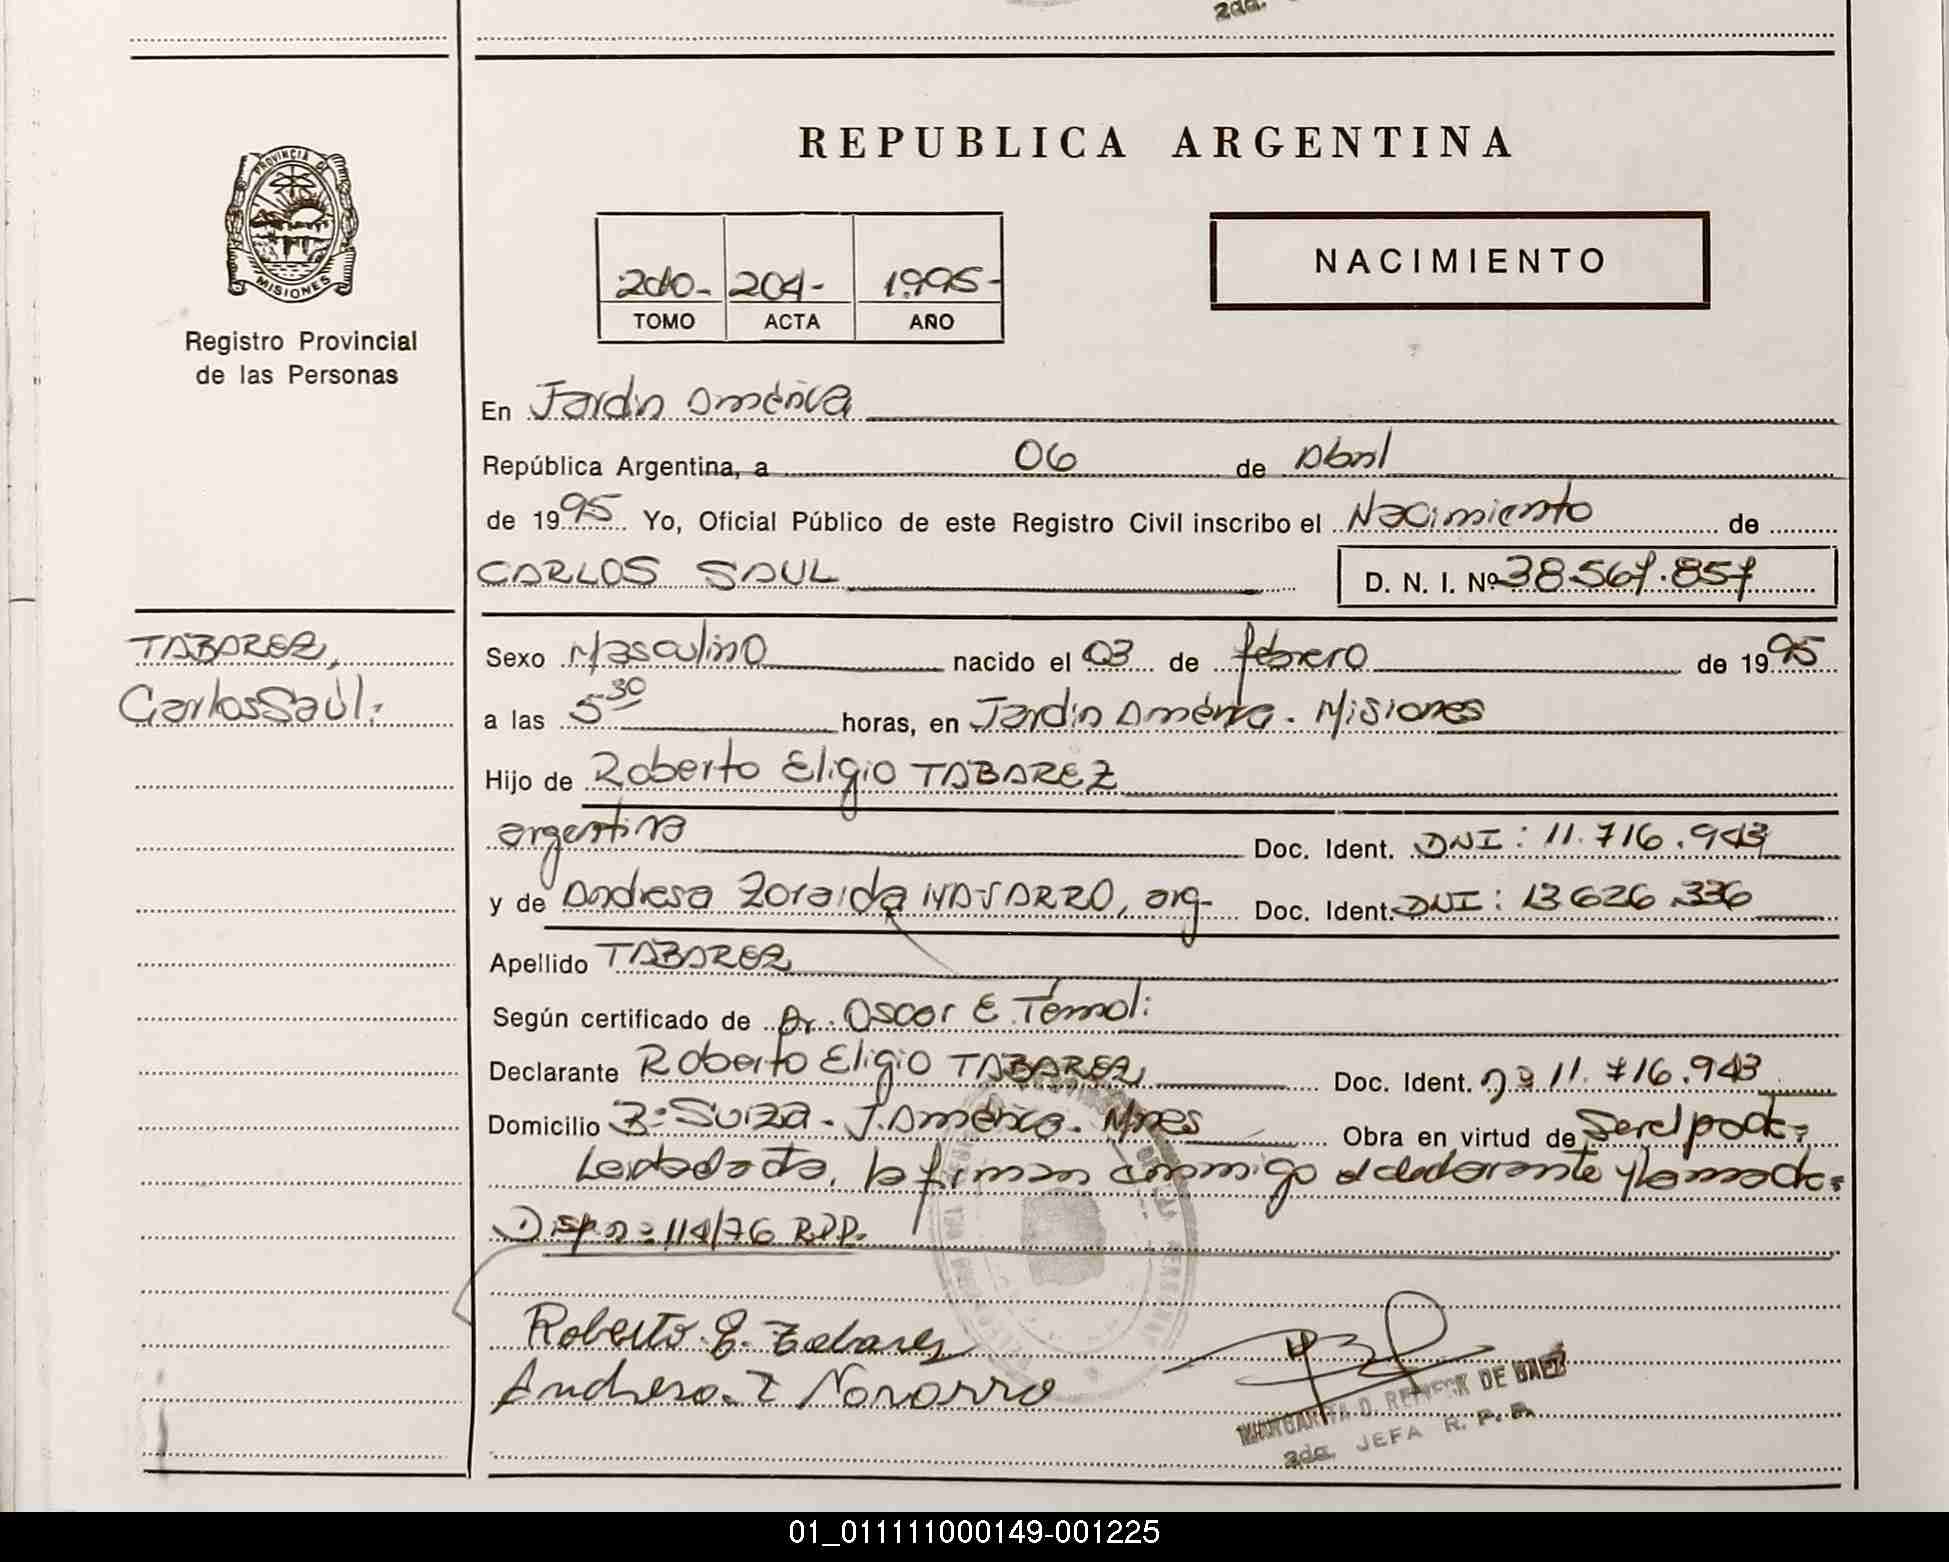 2da.
REPUBLICA ARGENTINA
PROVINCIA DE
MISIONES
Registro Provincial
de las Personas
2do- 204- 1995-
TOMO ACTA AÑO
NACIMIENTO
En Jardín América
República Argentina, a 06 de Abril
de 1995 Yo, Oficial Público de este Registro Civil inscribo el Nacimiento de
CARLOS SAUL D. N. I. Nº 38.567.857
TABAREZ,
Carlos Saúl.
Sexo Masculino nacido el 03 de febrero de 1995
a las 5 30 horas, en Jardín América. Misiones
Hijo de Roberto Eligio TABAREZ
argentina Doc. Ident. DNI: 11.716.943
y de Andresa Zoraida NAVARRO, arg- Doc. Ident. DNI: 13626.336
Apellido TABAREZ
Según certificado de Dr. Oscar E.
Declarante Roberto Eligio TABAREZ Doc. Ident. nº 11.716.943
Domicilio Bº Suiza - J. América. Mnes Obra en virtud de Ser el padre
Leida el acta, la firman conmigo el declarante y la madre
Disp nº 114/76 RPP.
Roberto. E. Tabarez
Andresa. Z Navarro
MARGARITA D. DE BAEZ
2da. JEFA R. P. P.
01_011111000149-001225